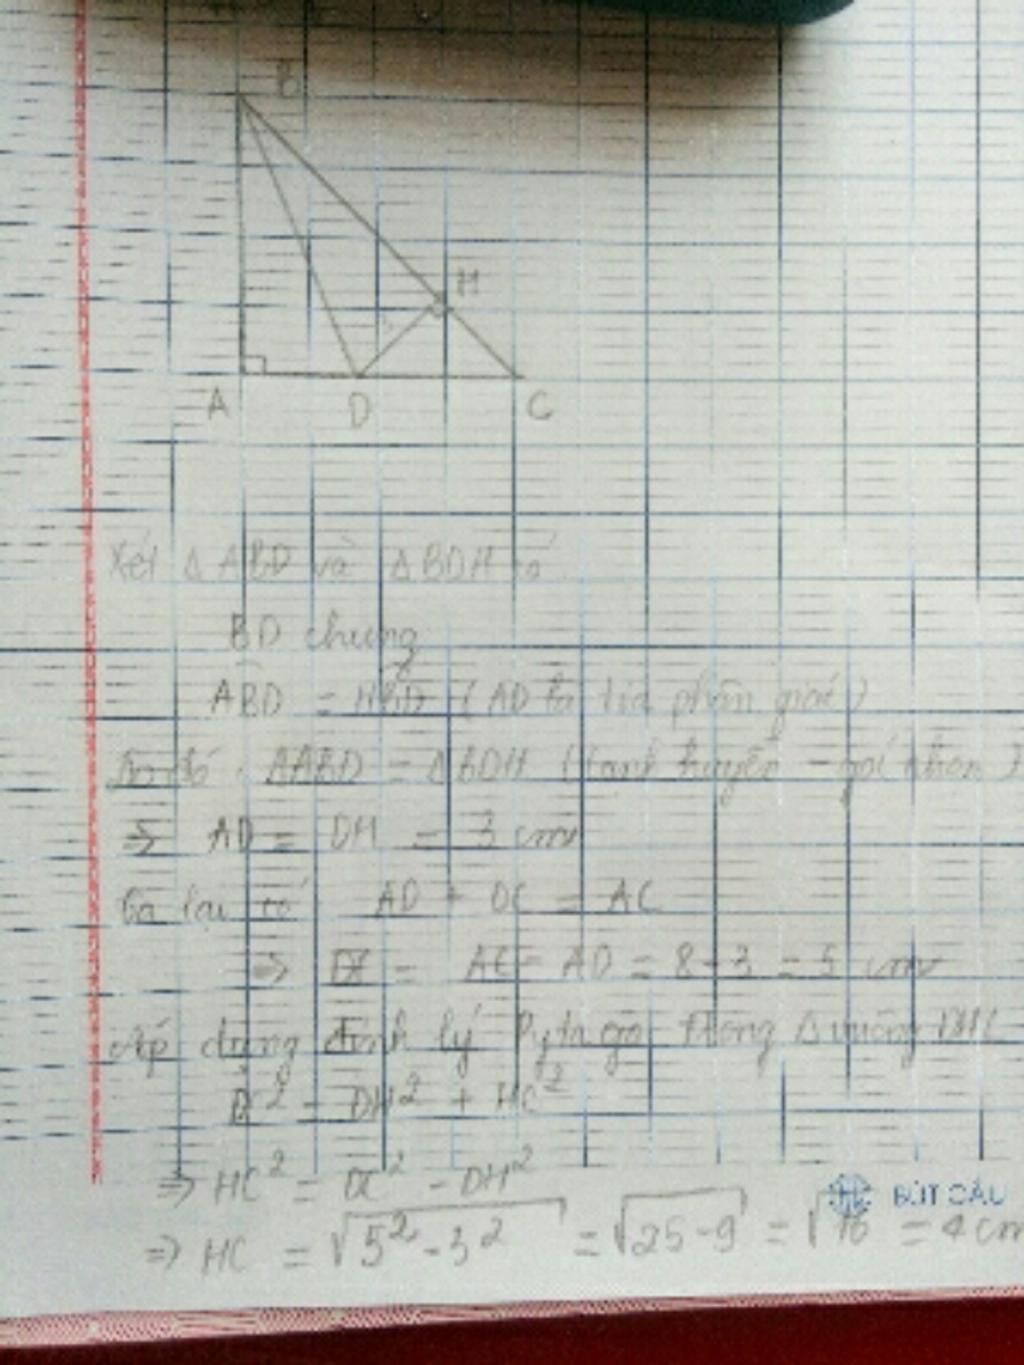 B
H
A D C
Xét Δ ABD và Δ BDH có
BD chung
ABD = HBD (AD là tia phân giác)
Do đó ΔABD = ΔBDH (cạnh huyền - góc nhọn)
⇒ AD = DH = 3 cm
Ta lại có AD + DC = AC
⇒ DC = AC - AD = 8 - 3 = 5 cm
Áp dụng định lý Pytago trong Δ vuông DHC
DC² = DH² + HC²
⇒ HC² = DC² - DH²
BÚT CÂU
⇒ HC = √5² - 3² = √25 - 9 = √16 = 4 cm